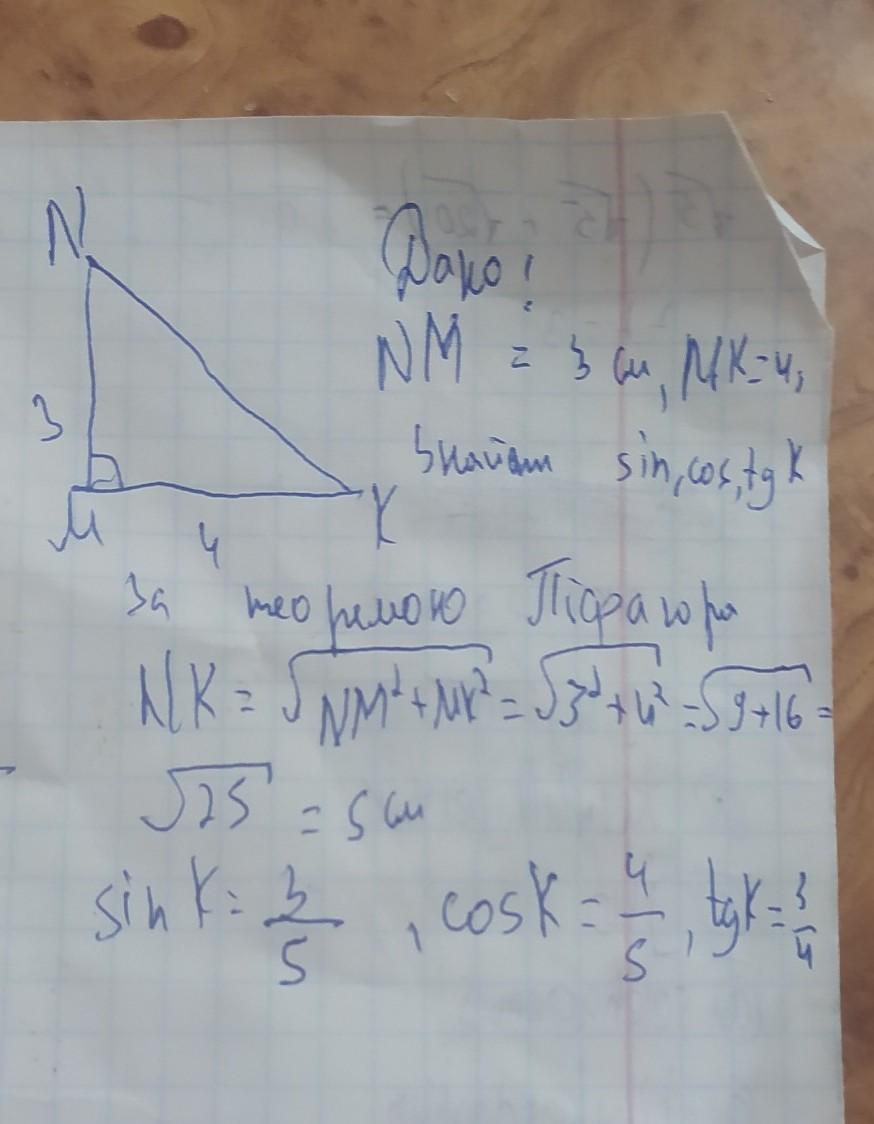 N
Дано:
NM = 3 см, MK=4,
3
Знайти sin, cos, tg K
M
4
K
За теоремою Піфагора
NK = √NM²+MK² = √3²+4² = √9+16 =
√25 = 5 см
sin K = 3/5 , cos K = 4/5 , tgK = 3/4